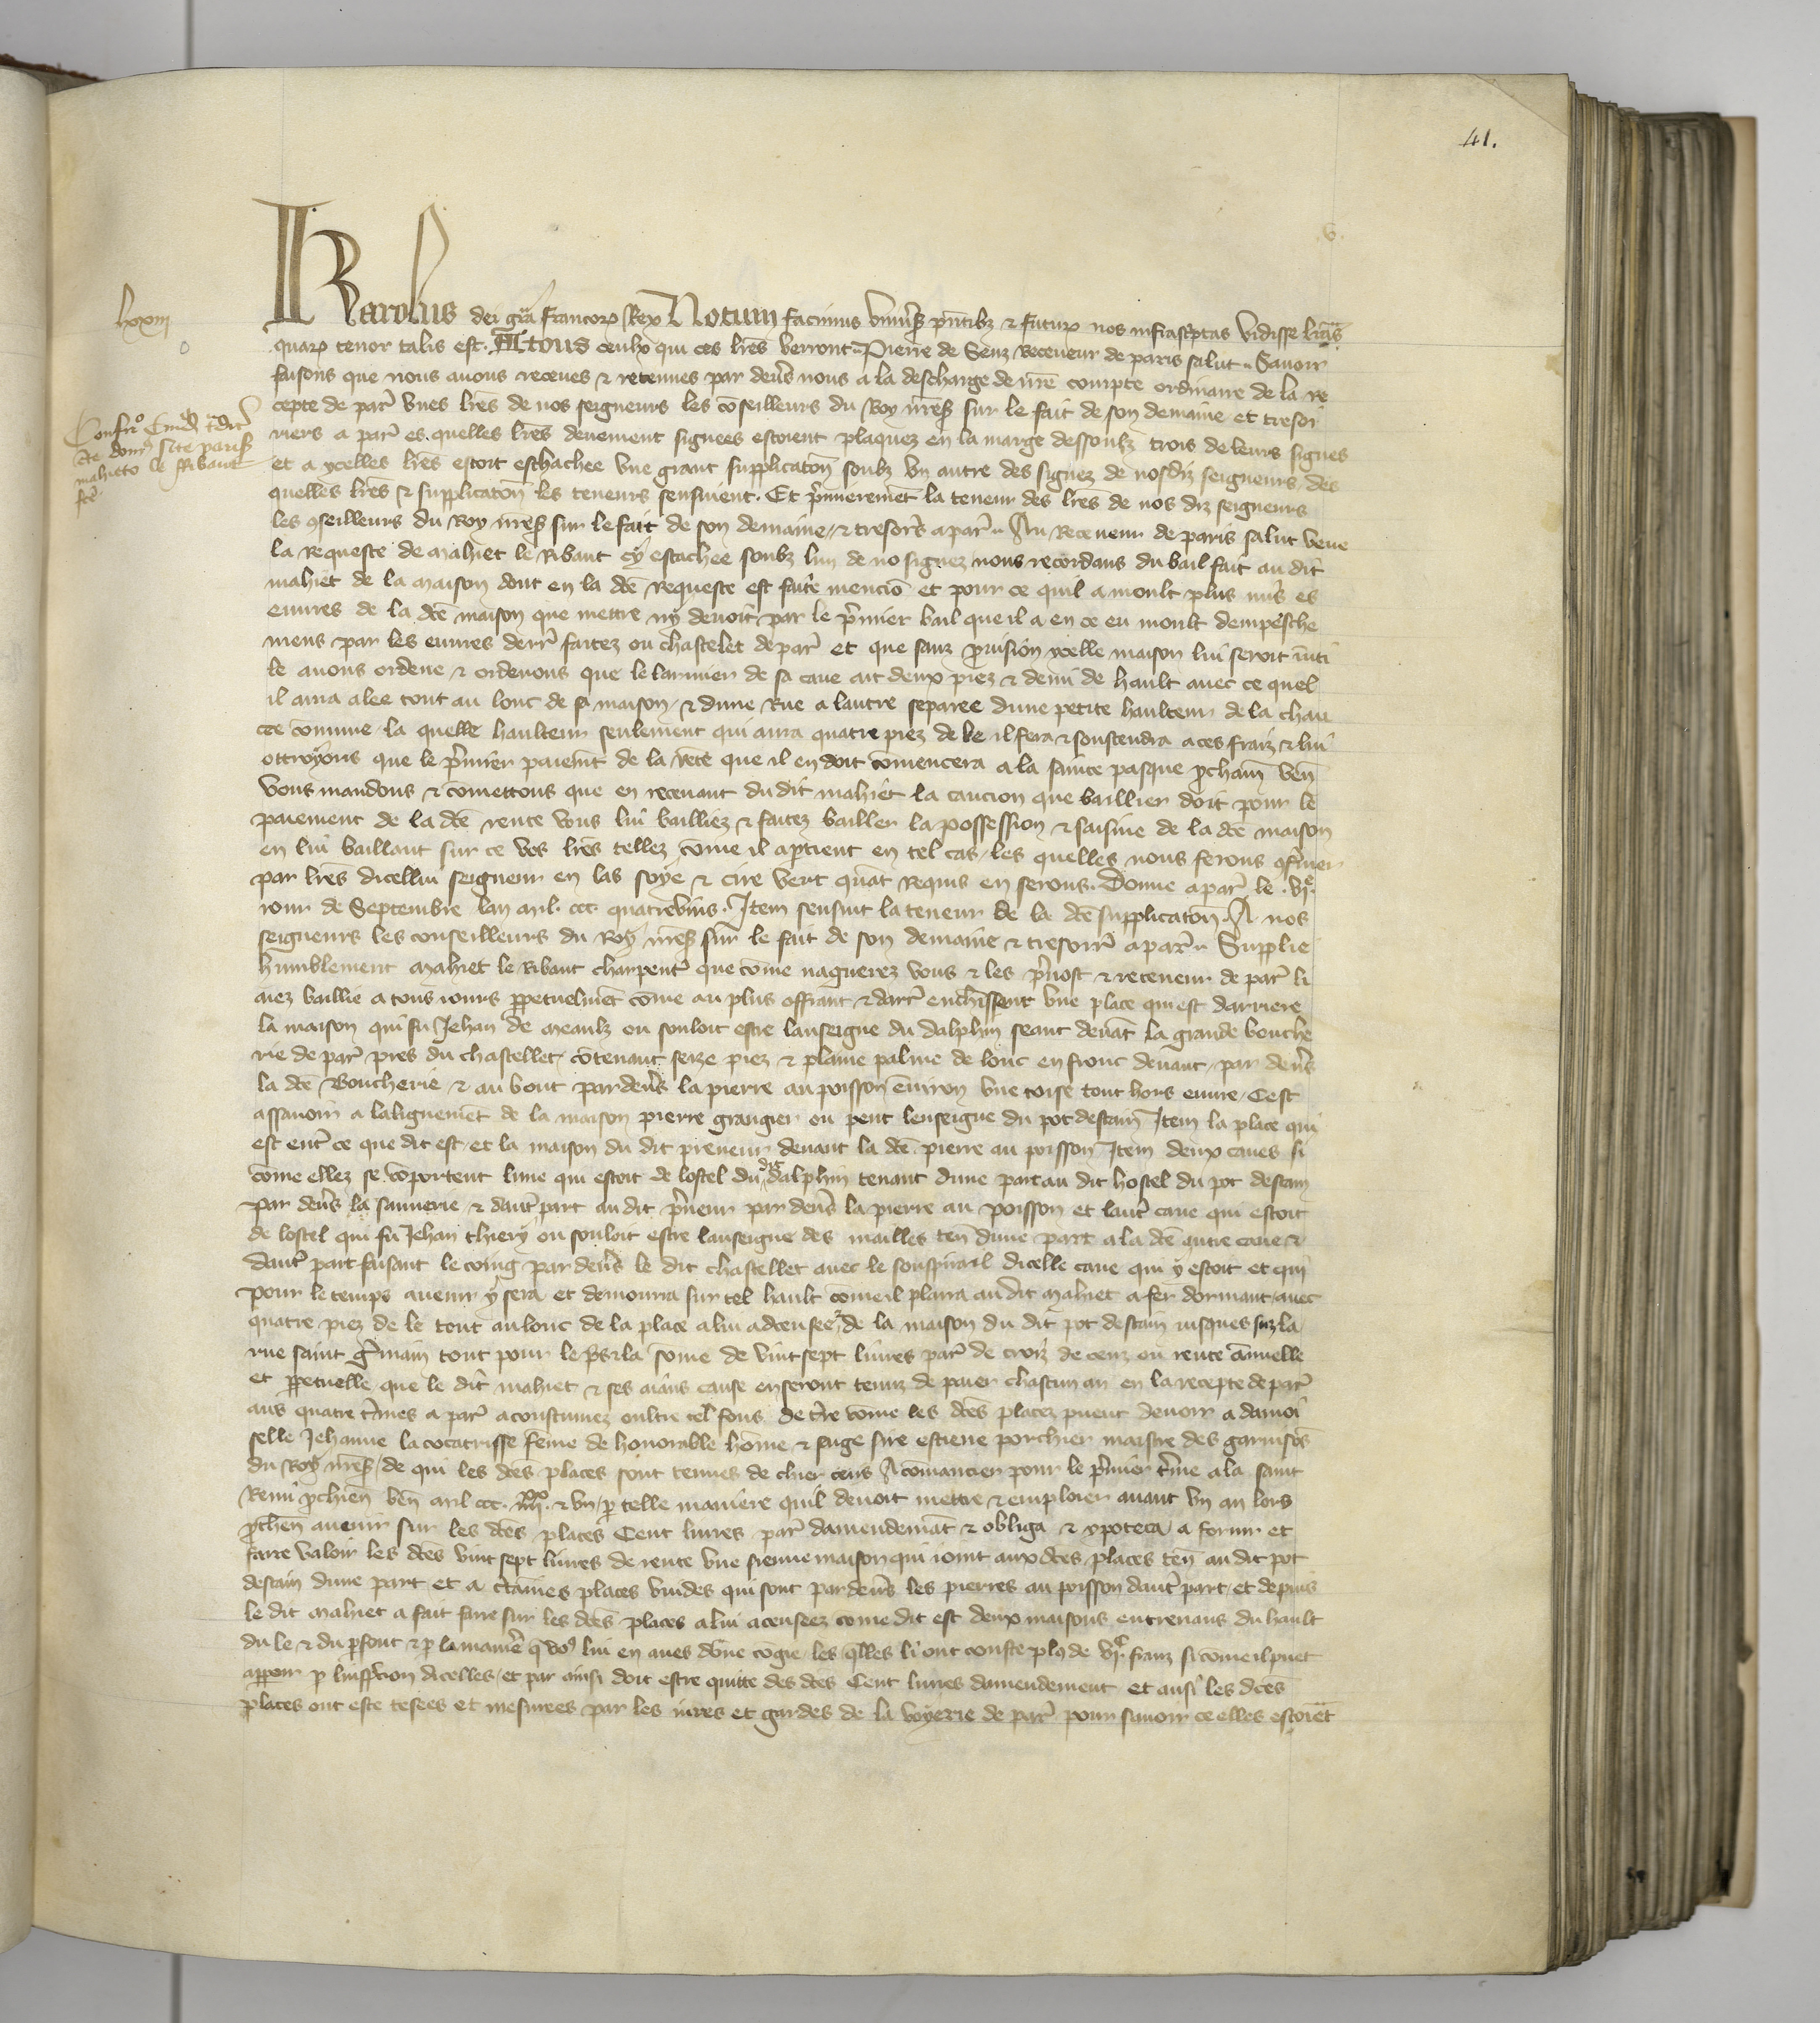 41.
lxxiii
Karolus dei gra francorum Rex Notum facimus universis pntibz & futuris nos infrascriptas vidisse lras
quarum tenor talis est. A tous ceulx qui ces lres verront Pierre de Senz Receveur de paris salut Savoir
faisons que nous avons receues & retenues par devs nous a la descharge de nre compte ordinaire de la re
cepte de par unes lres de nos seigneurs les conseilleurs du Roy nres sur le fait de son demaine et tresor
riers a par es quelles lres deuement signees estoient plaquez en la marge dessoubz trois de leurs signes
et a ycelles lres estoit estachee une grant supplicaton soubz un autre des signez de nosdiz seigneurs des
quelles lres & supplicaton les teneurs sensuient. Et primierement la teneur des lres de nos diz seigneurs
les conseilleurs du Roy nres sur le fait de son demaine & tresors a par Au Receveur de paris salut veue
la requeste de mahiet le Ribaut cy estachee soubz lun de no signez nous recordans du bail fait au dit
mahiet de la maison dont en la dce requeste est faite mencio et pour ce quil a moult plus mis es
euvres de la dce maison que mettre ny devoit par le primier bail que il a en ce eu moult dempesche
mens par les euvres derr faitez ou chastelet de par et que sanz provision ycelle maison lui seroit inuti
le avons ordene & ordenons que le larmier de sa cave ait deux piez & demi de hault avec ce quel
il aura alee tout au lonc de sa maison & dune rue a lautre separee dune petite haulteur de la chau
cee comune la quelle haulteur seulement qui aura quatre piez de le il fera & soustendra a ces fraiz & lui
ottroyons que le primier paiemt de la rete que il en doit comencera a la sainte pasque pchain ven
vous mandons & comettons que en recevant du dit mahiet la caucion que baillier doit pour le
paiement de la dce rente vous lui bailliez & faitez bailler la possession & saisine de la dce maison
en lui baillant sur ce vos lres tellez come il aptient en tel cas les quelles nous ferons confermer
par lres dicellui seigneur en las soye & cire vert quat requis en serons. Donne a par le .vi.e
jour de Septembre lan mil. ccc. quatrevins. Item sensuit la teneur de la dce supplicaton. A nos
seigneurs les conseilleurs du Roy nres sur le fait de son demaine & tresorirs a par Supplie
humblement mahiet le Ribaut charpentr que come naguerez vous & les prvost & receveur de par li
aiez baillie a tous jours ppetuelmet come au plus offrant & darr encherissent une place qui est darriere
la maison qui fu Jehan de meaulz ou souloit estre lanseigne du dalphin seant devat la grande bouche
rie de par pres du chastellet contenant seze piez & plaine palme de lonc en fronc devant par devs
la dce Boucherie & au bout par devs la pierre au poisson environ une toise tout hors euvre Cest
assavoir a lalignemet de la maison pierre grangier ou pent lenseigne du pot destain Item la place qui
est entr ce que dit est et la maison du dit preneur devant la dce pierre au poisson Item deux caves si
come ellez se comportent lune qui estoit de lostel du dit dalphin tenant dune part au dit hostel du pot destain
par devs la saunerie & dautr part au dit preneur par devs la pierre au poisson et lautr cave qui estoit
de lostel qui fu Jehan thiery ou souloit estre lanseigne des mailles ten dune part a la dce autre cave &
dautr part faisant le coing par devs le dit chastellet avec le souspirail dicelle cave qui y estoit et qui
pour le temps avenir y sera et demourra sur tel hault come il plaira au dit mahiet a fer dormant avec
quatre piez de le tout au lonc de la place a lui adcensee & de la maison du dit pot destain jusques sur la
rue saint germain tout pour le pris & la some de vint sept livres par de croiz de cenz ou rente annuelle
et ppetuelle que le dit mahiet & ses aians cause en seront tenuz de paier chascun an en la recepte de par
aus quatre trmes a par acoustumez oultre tel fons de trre come les dces placez puent devoir a damoi
selle Jehanne la cocatrisse feme de honorable home & sage sire estiene porchier maistre des garnisos
du Roy nres de qui les dces places sont tenues de chier cens A comancier pour le primier trme a la saint
Remi pchien ven mil ccc. iiiixx & un p telle maniere quil devoit mettre & emploier avant un an lors
pchen avenir sur les dces places Cent livres par damendemat & obliga & ypoteca a fornir et
faire valoir les dces vint sept livres de rente une sienne maison qui joint aux dces places ten au dit pot
destain dune part et a ctaines places vuides qui sont par devs les pierres au poisson dautr part et depuis
le dit mahiet a fait faire sur les dces places a lui acenseez come dit est deux maisons entrenans du hault
du le & du pfont & p la manre que vous lui en aves done cogie les qlles li ont couste plus de vi.c franz si come il puet
apparoir p linspcion dicelles et par ainsi doit estre quitte des dces Cent livres damendement et ausi les dces
places ont este tesees et mesurees par les jures et gardes de la voyerie de par pour savoir ce elles estoiet